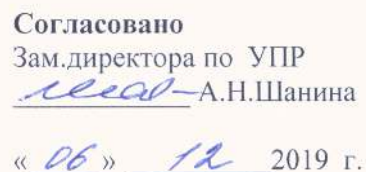 Согласовано
Зам.директора по УПР
А.Н.Шанина
« 06 » 12 2019 г.